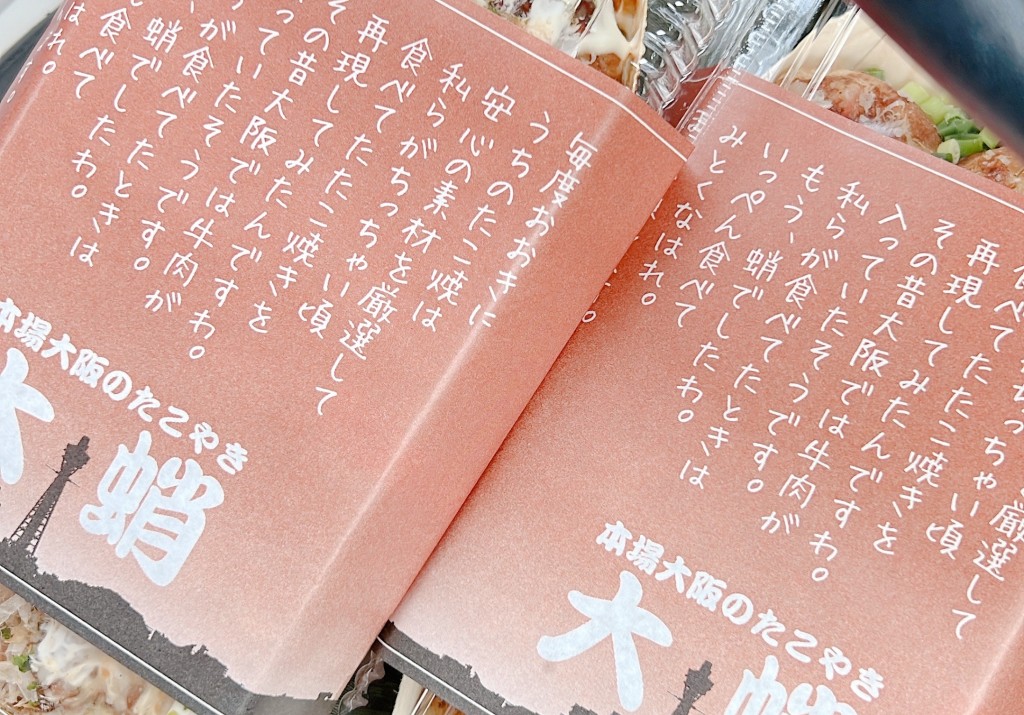 毎度おおきに
うちのたこ焼は
安心の素材を厳選して
私らがちっちゃい頃
食べてたたこ焼きを
再現してみたんですわ。
その昔大阪では牛肉が
っていたそうです。
が食べてたときは
蛸でしたわ。
食べて
はれ。
本場大阪のたこやき
大蛸
厳選して
ちっちゃい頃
食べてたたこ焼きを
再現してみたんですわ。
その昔大阪では牛肉が
入っていたそうです。
私らが食べてたときは
もう、蛸でしたわ。
いっぺん食べて
みとくなはれ。
本場大阪のたこやき
大蛸